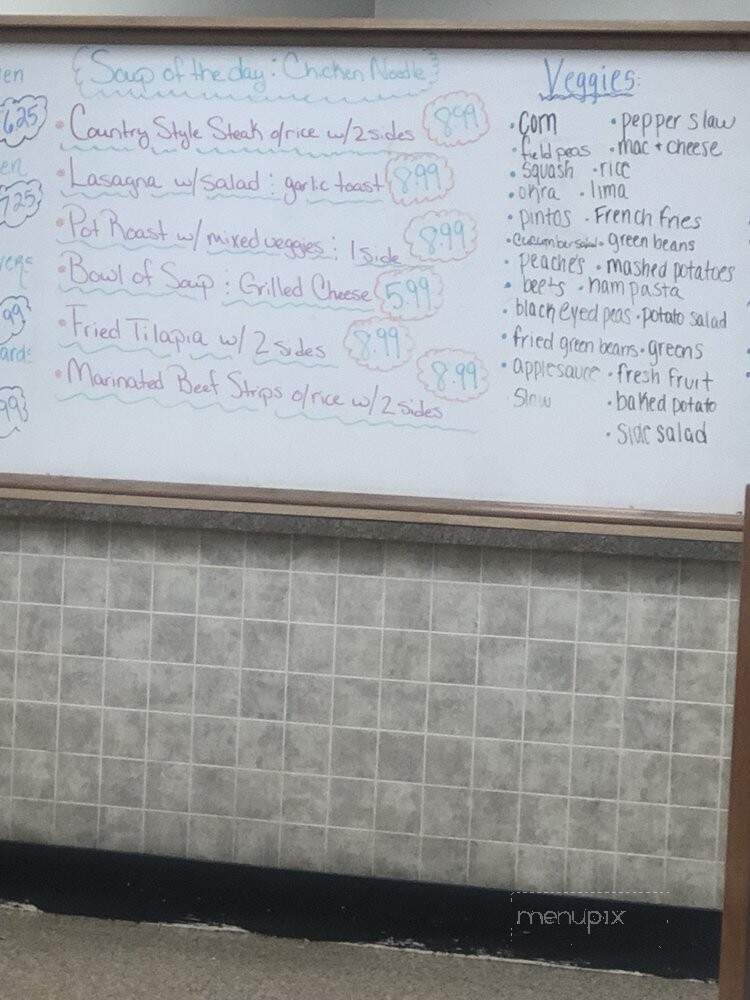 en
6.25
en
7.25
99
99
Soup of the day: Chicken Noodle
• Country Style Steak o/rice w/2 sides 8.99
• Lasagna w/salad : garlic toast 8.99
• Pot Roast w/ mixed veggies : 1 side 8.99
• Bowl of Soup : Grilled Cheese 5.99
• Fried Tilapia w/ 2 sides 8.99
• Marinated Beef Strips o/rice w/2 sides 8.99
Veggies:
• corn • pepper slaw
• field peas • mac + cheese
• squash • rice
• okra • lima
• pintos • French fries
• cucumber salad • green beans
• peaches • mashed potatoes
• beets • ham pasta
• black eyed peas • potato salad
• fried green beans • greens
• applesauce • fresh fruit
Slaw • baked potato
• side salad
menupix